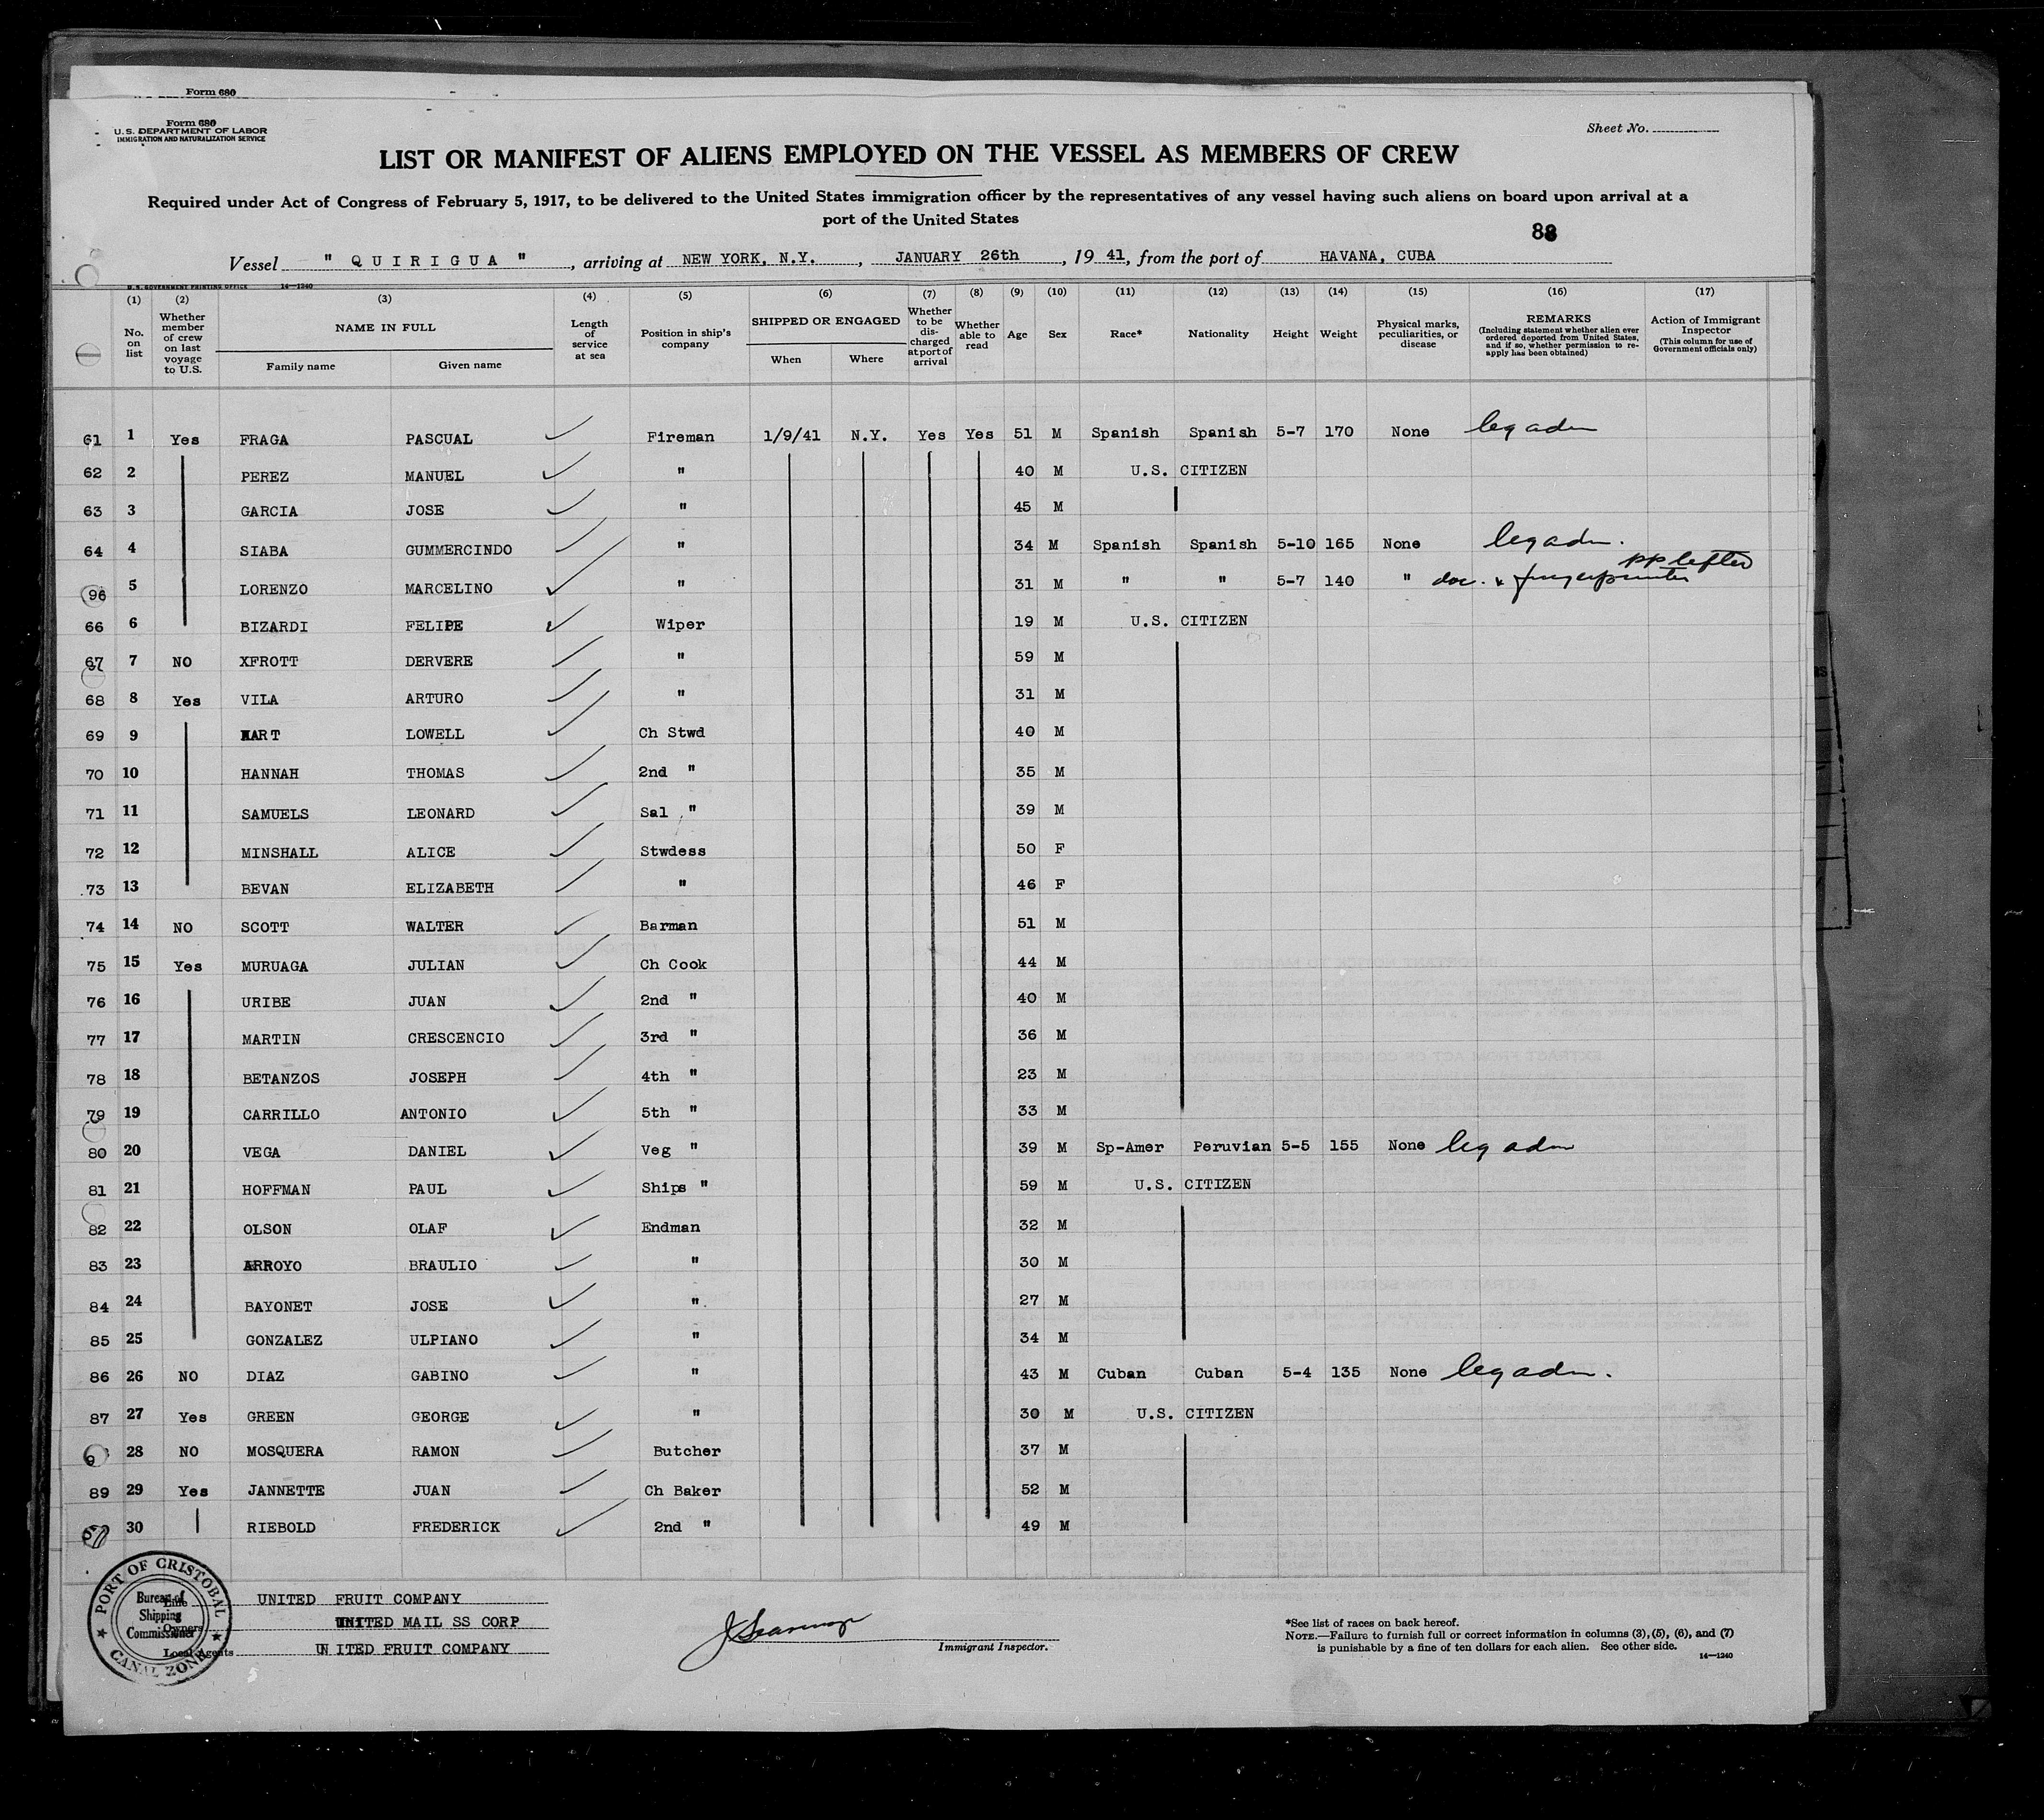 Form 680
Form 680
U.S. DEPARTMENT OF LABOR
IMMIGRATION AND NATURALIZATION SERVICE
Sheet No.
LIST OR MANIFEST OF ALIENS EMPLOYED ON THE VESSEL AS MEMBERS OF CREW
Required under Act of Congress of February 5, 1917, to be delivered to the United States immigration officer by the representatives of any vessel having such aliens on board upon arrival at a
port of the United States
88
Vessel " QUIRIGUA " , arriving at NEW YORK, N.Y. , JANUARY 26th , 19 41, from the port of HAVANA, CUBA
U.S. GOVERNMENT PRINTING OFFICE 14—1240
(1) (2) (3) (4) (5) (6) (7) (8) (9) (10) (11) (12) (13) (14) (15) (16) (17)
No. on list
Whether member of crew on last voyage to U.S.
NAME IN FULL
Family name Given name
Length of service at sea
Position in ship's company
SHIPPED OR ENGAGED
When Where
Whether to be discharged at port of arrival
Whether able to read
Age
Sex
Race*
Nationality
Height
Weight
Physical marks, peculiarities, or disease
REMARKS
(Including statement whether alien ever ordered deported from United States, and if so, whether permission to reapply has been obtained)
Action of Immigrant Inspector
(This column for use of Government officials only)
61 1 Yes FRAGA PASCUAL Fireman 1/9/41 N.Y. Yes Yes 51 M Spanish Spanish 5-7 170 None leg adm
62 2 PEREZ MANUEL " 40 M U.S. CITIZEN
63 3 GARCIA JOSE " 45 M
64 4 SIABA GUMMERCINDO " 34 M Spanish Spanish 5-10 165 None leg adm.
pp lifted
96 5 LORENZO MARCELINO " 31 M " " 5-7 140 " doc. & fingerprinted
66 6 BIZARDI FELIPE Wiper 19 M U.S. CITIZEN
67 7 NO XFROTT DERVERE " 59 M
68 8 Yes VILA ARTURO " 31 M
69 9 HART LOWELL Ch Stwd 40 M
70 10 HANNAH THOMAS 2nd " 35 M
71 11 SAMUELS LEONARD Sal " 39 M
72 12 MINSHALL ALICE Stwdess 50 F
73 13 BEVAN ELIZABETH " 46 F
74 14 NO SCOTT WALTER Barman 51 M
75 15 Yes MURUAGA JULIAN Ch Cook 44 M
76 16 URIBE JUAN 2nd " 40 M
77 17 MARTIN CRESCENCIO 3rd " 36 M
78 18 BETANZOS JOSEPH 4th " 23 M
79 19 CARRILLO ANTONIO 5th " 33 M
80 20 VEGA DANIEL Veg " 39 M Sp-Amer Peruvian 5-5 155 None leg adm
81 21 HOFFMAN PAUL Ships " 59 M U.S. CITIZEN
82 22 OLSON OLAF Endman 32 M
83 23 ARROYO BRAULIO " 30 M
84 24 BAYONET JOSE " 27 M
85 25 GONZALEZ ULPIANO " 34 M
86 26 NO DIAZ GABINO " 43 M Cuban Cuban 5-4 135 None leg adm.
87 27 Yes GREEN GEORGE " 30 M U.S. CITIZEN
28 NO MOSQUERA RAMON Butcher 37 M
89 29 Yes JANNETTE JUAN Ch Baker 52 M
30 RIEBOLD FREDERICK 2nd " 49 M
PORT OF CRISTOBAL
Bureau of
Shipping
Commissioner
CANAL ZONE
Line UNITED FRUIT COMPANY
Owners UNITED MAIL SS CORP
Local Agents UNITED FRUIT COMPANY
Immigrant Inspector.
*See list of races on back hereof.
NOTE.—Failure to furnish full or correct information in columns (3), (5), (6), and (7)
is punishable by a fine of ten dollars for each alien. See other side.
14—1240